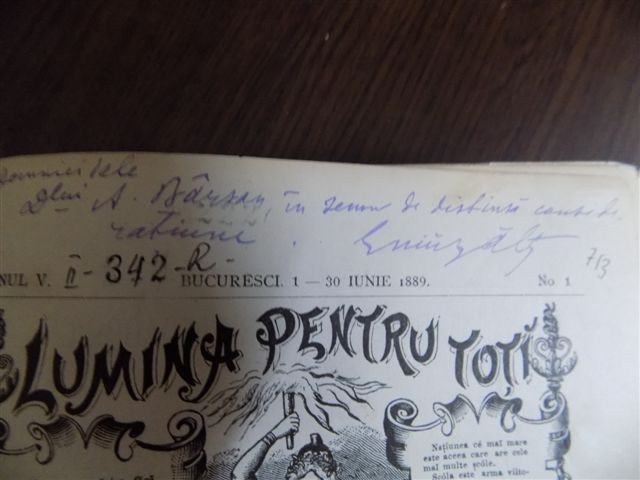 Domniei Sele
Dlui A. Bârsan, în semn de distinsă conside-
rațiune.
NUL V. II - 342 - R - BUCURESCI. 1 — 30 IUNIE 1889. No. 1
713
LUMINA PENTRU TOȚI
Națiunea cé mai mare
este aceea care are cele
mai multe șcóle.
Scóla este arma viito-